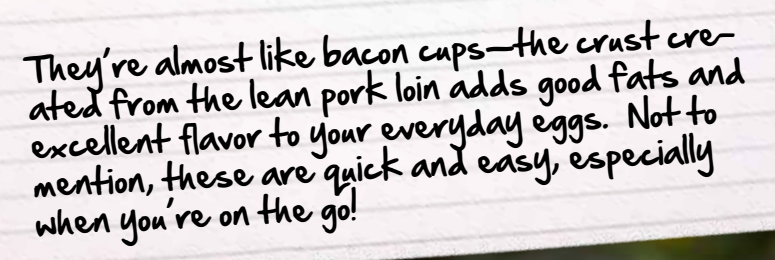 They're almost like bacon cups—the crust cre-
ated from the lean pork loin adds good fats and
excellent flavor to your everyday eggs.  Not to
mention, these are quick and easy, especially
when you're on the go!